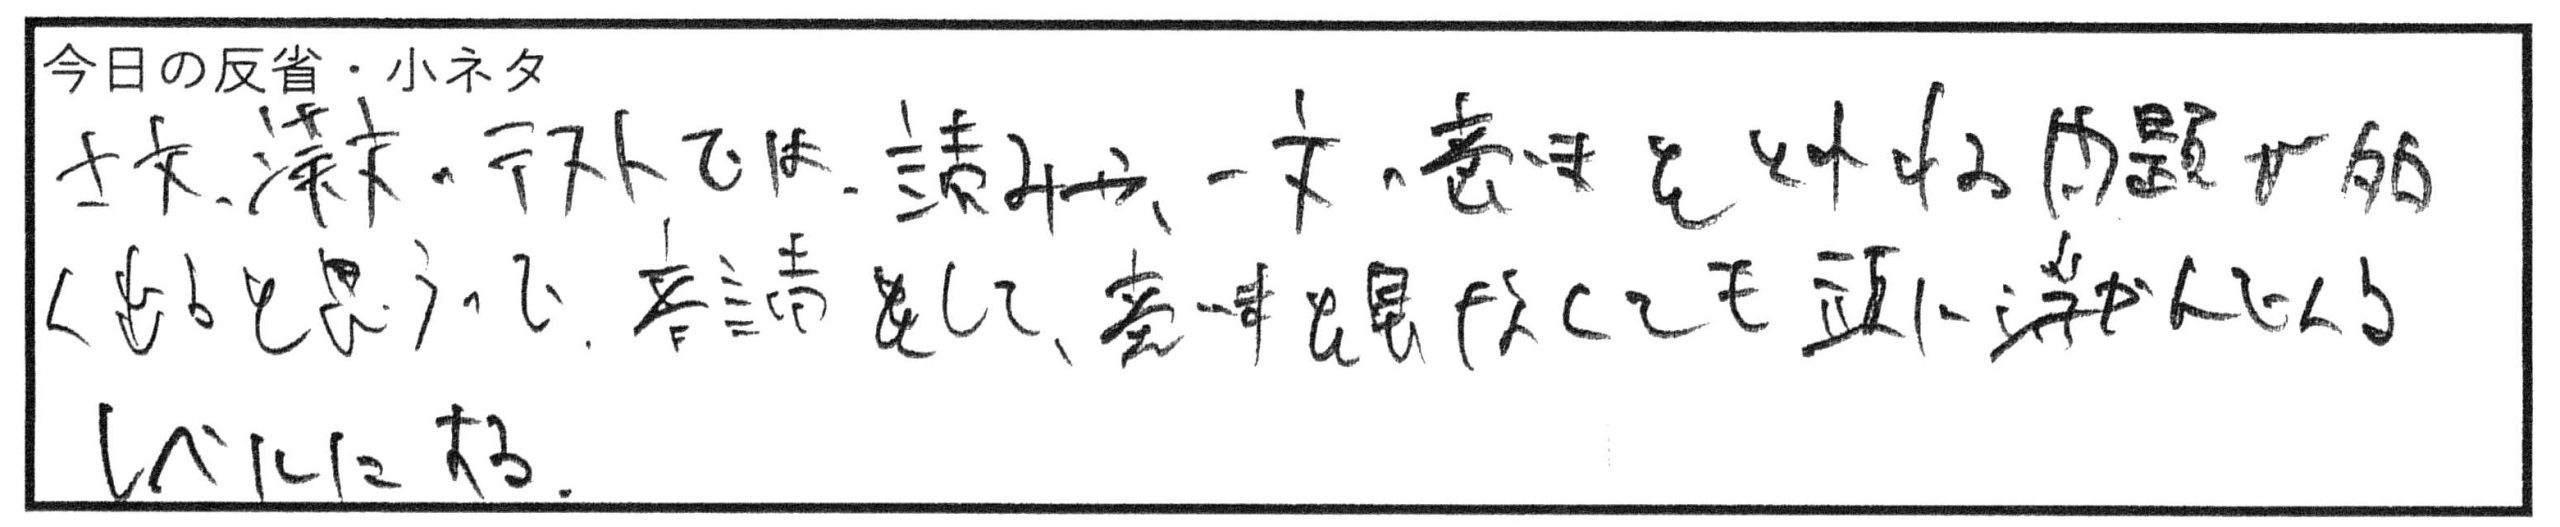 今日の反省・小ネタ
古文、漢文のテストでは、読みや、一文の意味をとわれる問題が多
く出ると思うので、音読をして、意味を見なくても頭に浮かんでくる
レベルにする。